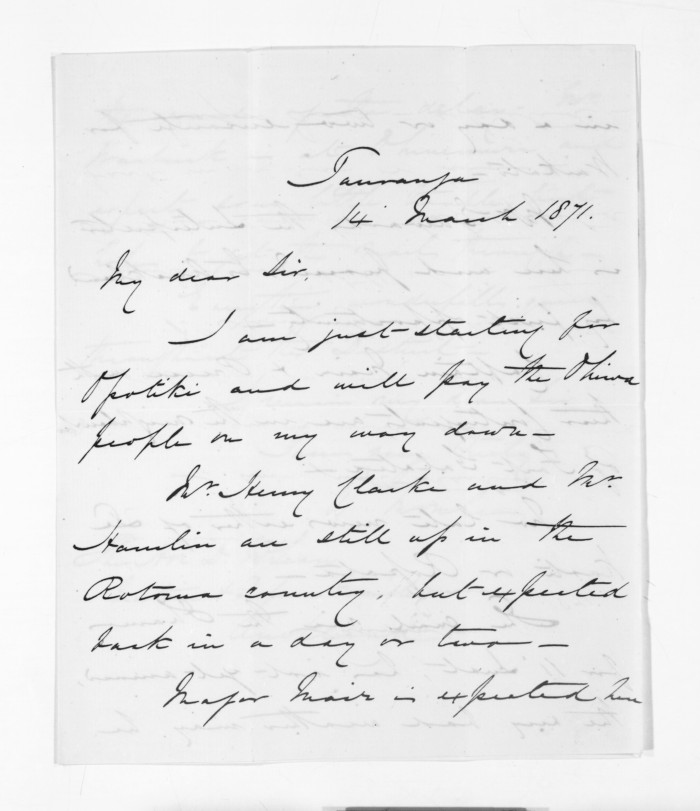 Tauranga
14 March 1871.
My dear Sir,
I am just starting for
Opotiki and will pay the Ohiwa
people on my way down—
Mr. Henry Clarke and Mr.
Hamlin are still up in the
Rotorua country, but expected
back in a day or two—
Major Mair is expected here